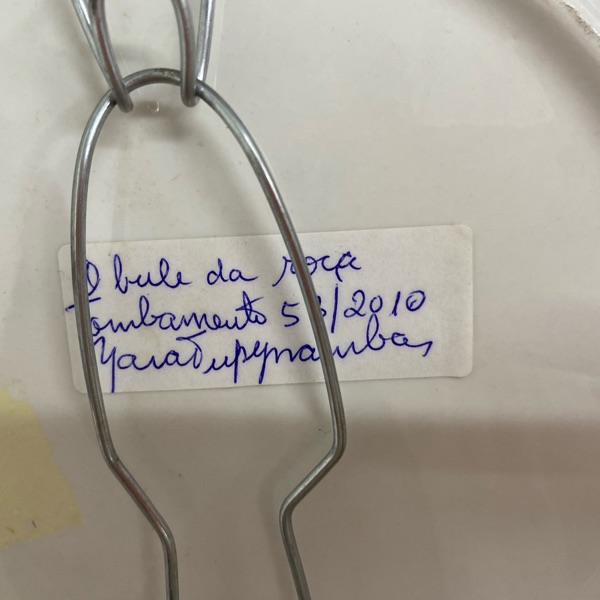 O bule da roça
Tombamento 5 /2010
Yara Tupynambá